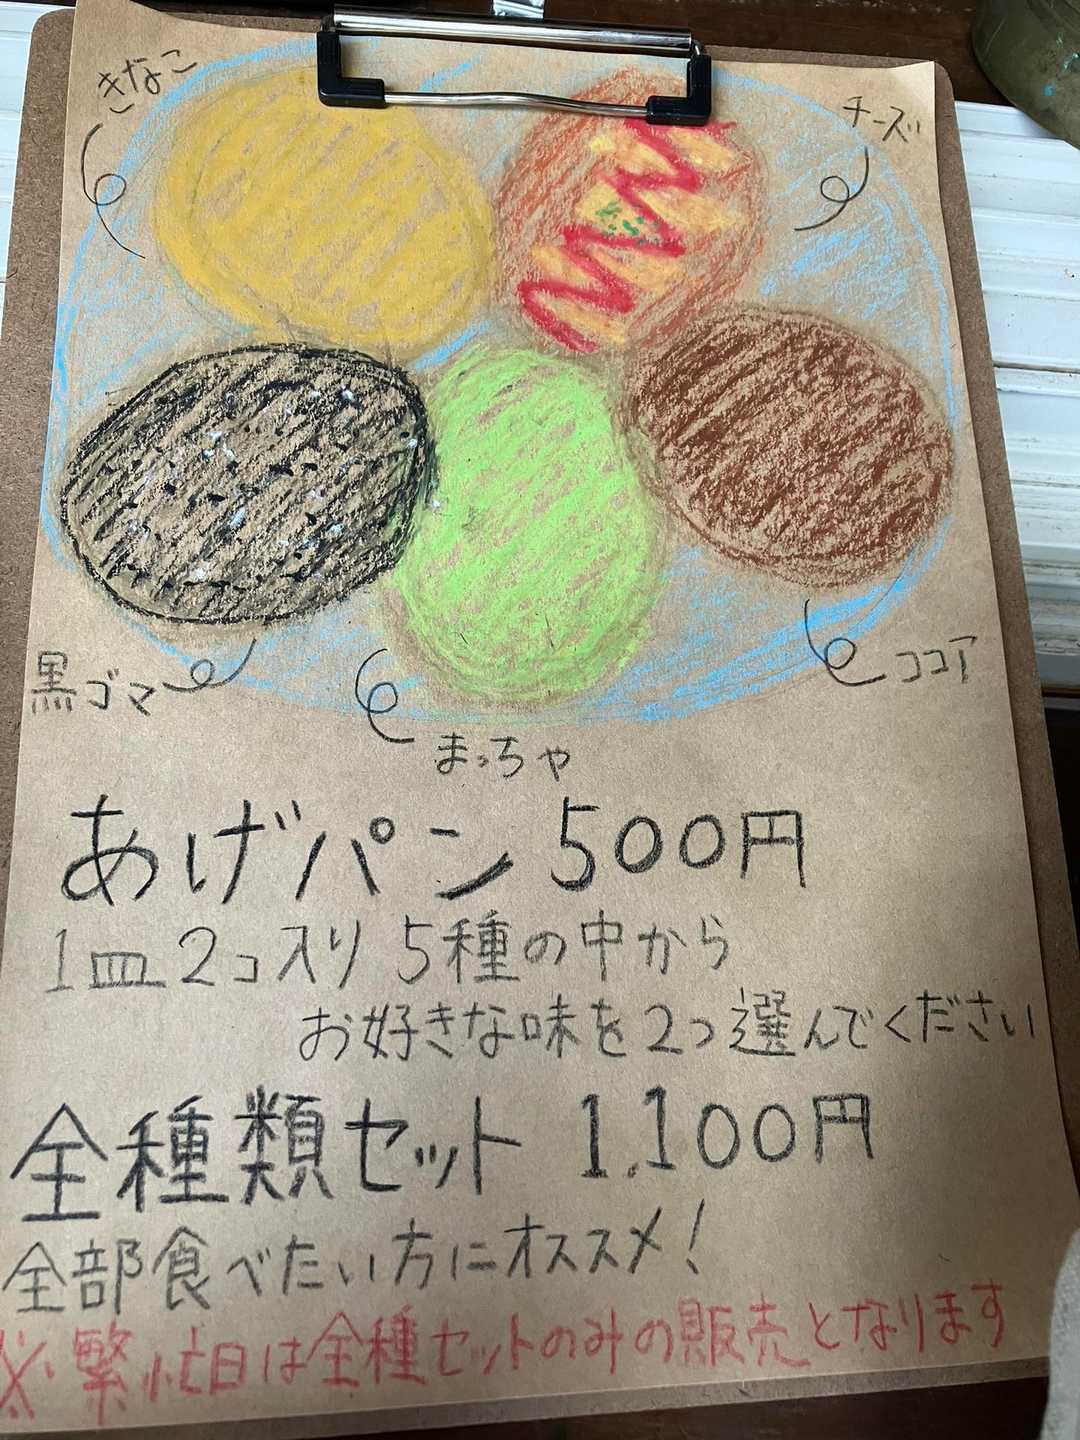 きなこ
チーズ
黒ゴマ
ココア
まっちゃ
あげパン 500円
1皿2コ入り 5種の中から
お好きな味を2つ選んでください
全種類セット 1,100円
全部食べたい方にオススメ!
※繁忙日は全種セットのみの販売となります